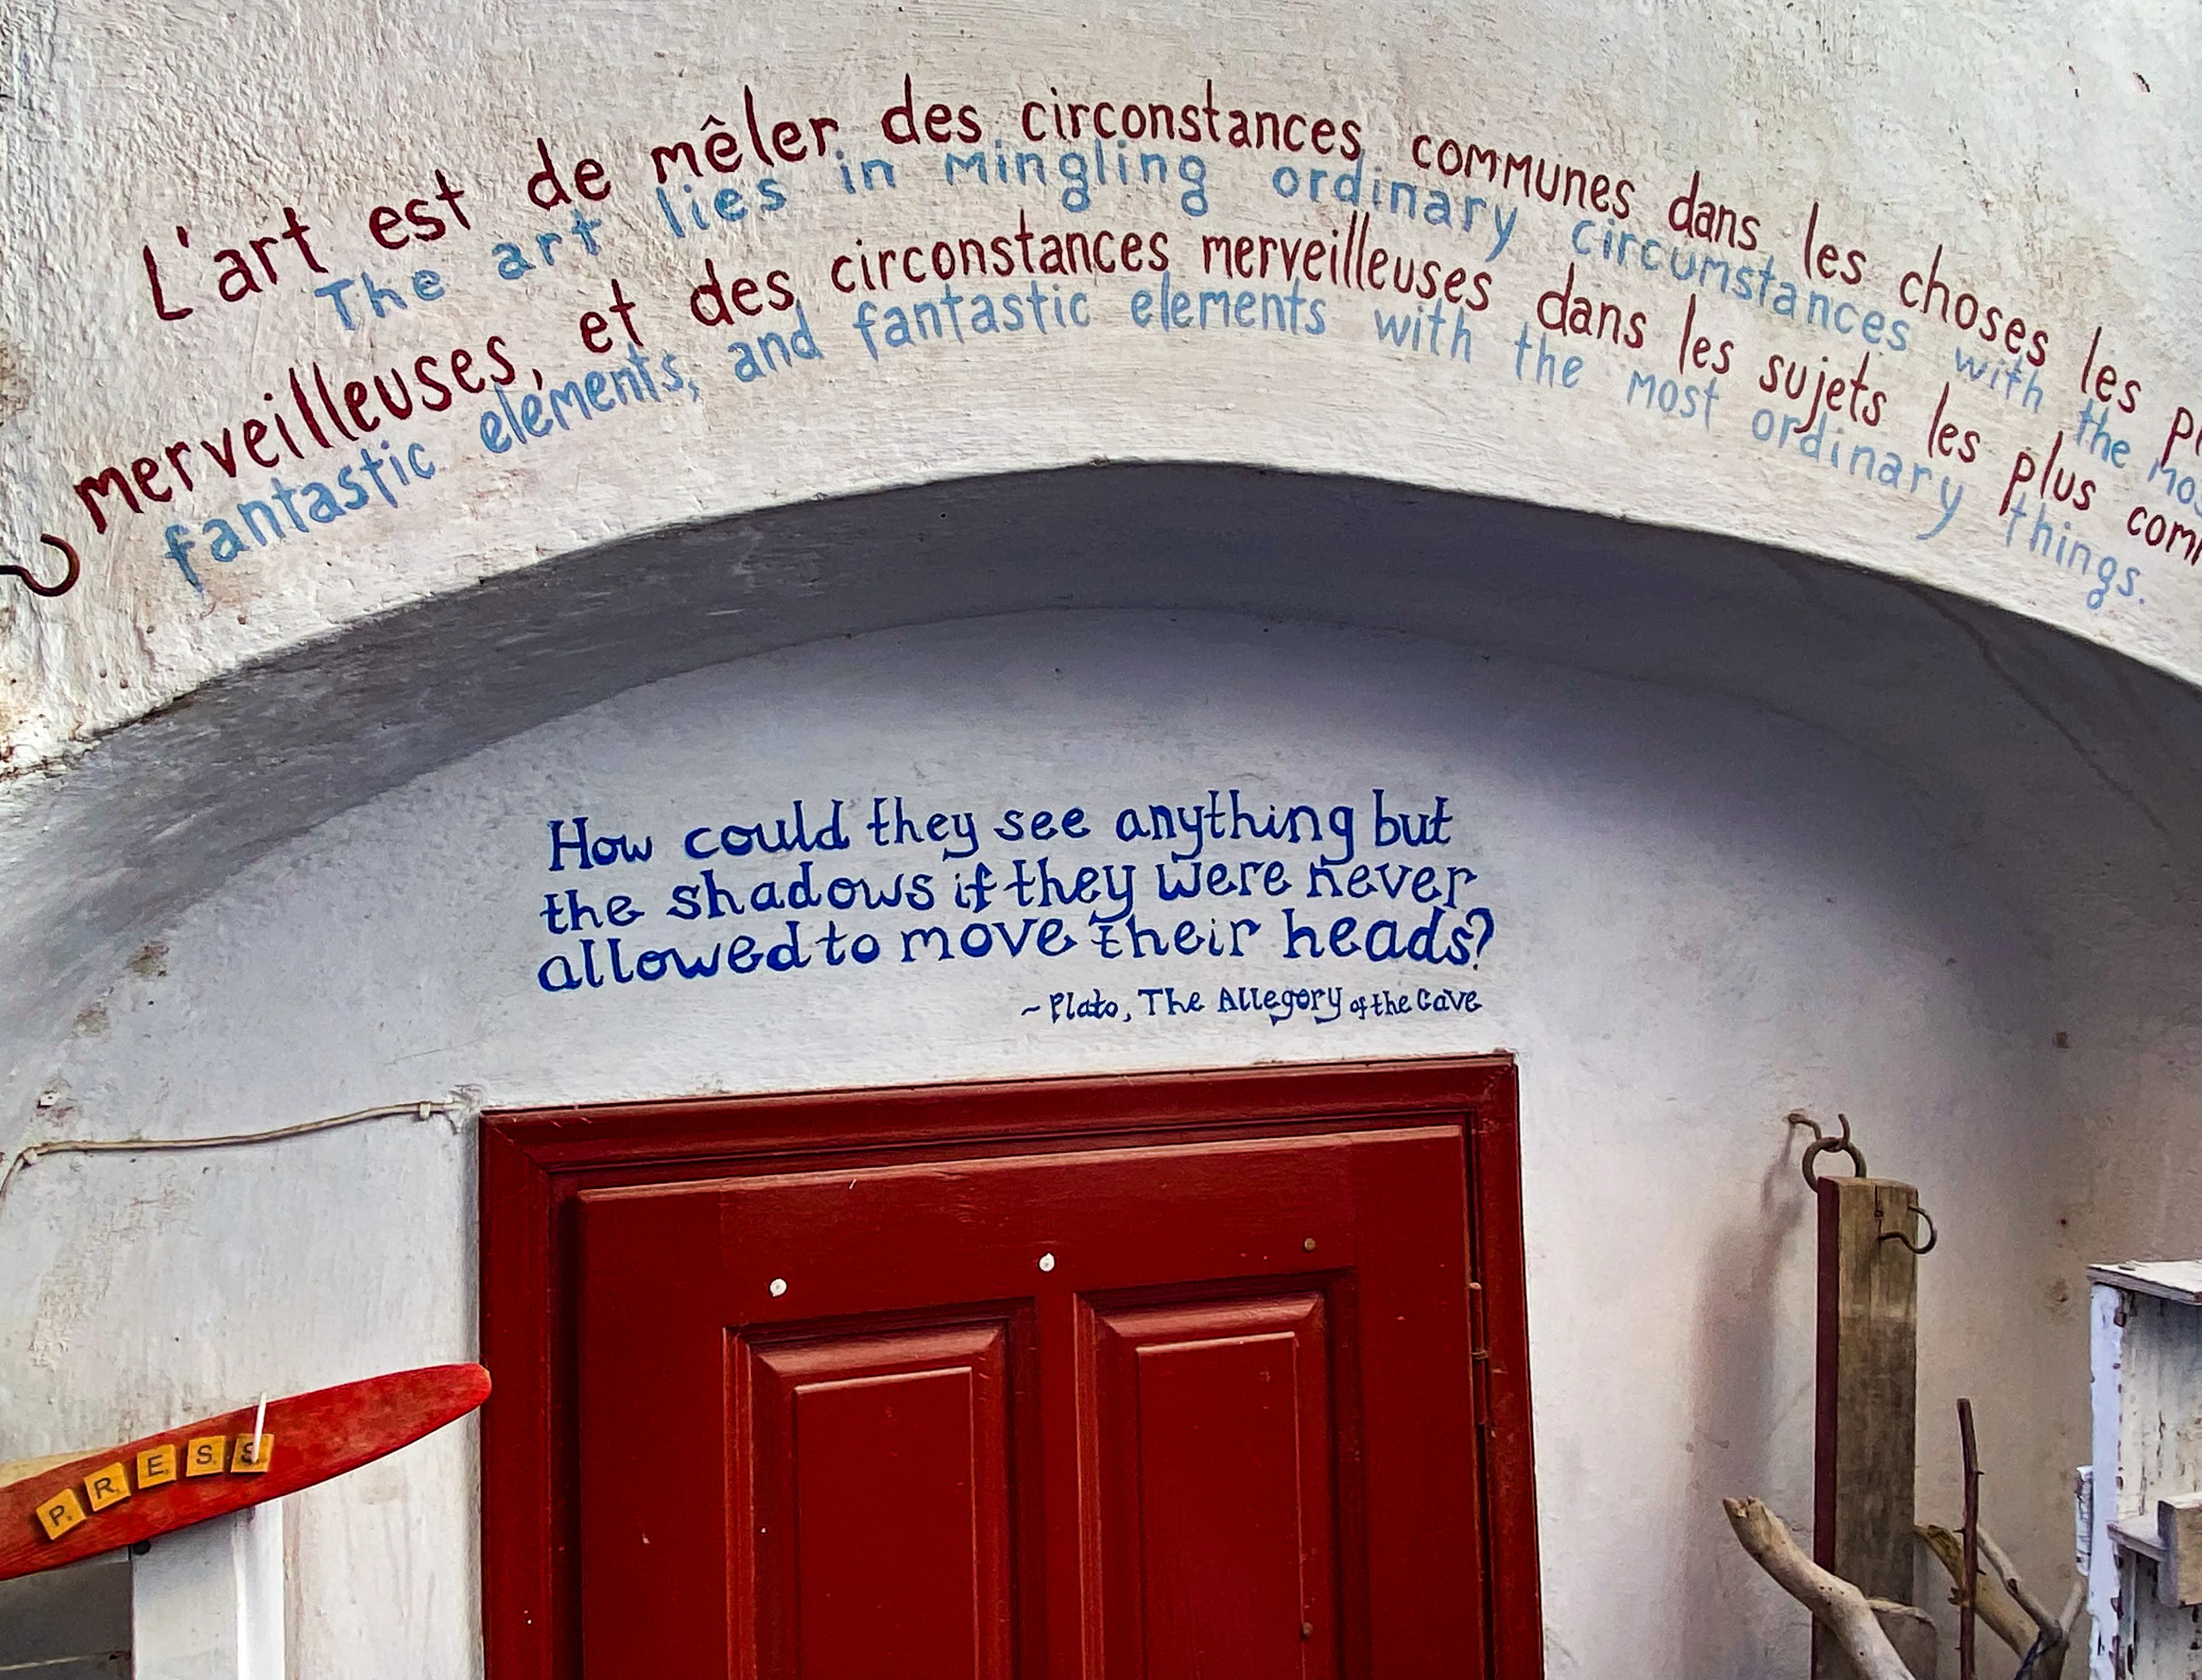 L'art est de mêler des circonstances communes dans les choses les
The art lies in mingling ordinary circumstances with the
merveilleuses, et des circonstances merveilleuses dans les sujets les plus
fantastic elements, and fantastic elements with the most ordinary things.
How could they see anything but
the shadows if they were never
allowed to move their heads?
~ Plato, The Allegory of the Cave
PRESS